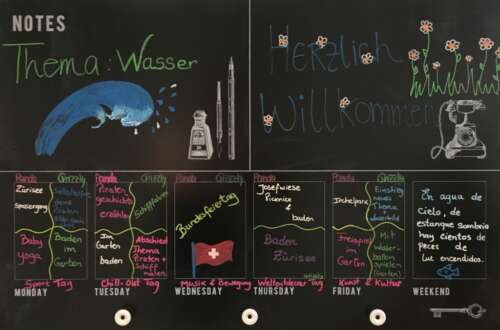 NOTES
Thema: Wasser
Herzlich
Willkommen
Panda Grizzly
Zürisee
Spaziergang
Baby
yoga
Baden
im
Garten
Sport Tag
MONDAY
Panda Grizzly
Piraten
geschichte
erzählen
Schifffahren
Im
Garten
baden
Abschied
Thema
Piraten +
Schiff
malen
Chill-Out Tag
TUESDAY
Bundesfeiertag
Musik & Bewegung
WEDNESDAY
Panda Grizzly
Josefwiese
Picknick
&
baden
Baden
Zürisee
Weltentdecker Tag
THURSDAY
Panda Grizzly
Einstieg
neues
Thema
Freispiel
im
Garten
Mit
wasser-
ballon
spielen
Garten
Kunst & Kultur
FRIDAY
En agua de
Cielo, de
estanque sombrio
hay cientos de
peces de
luz encendidos.
WEEKEND